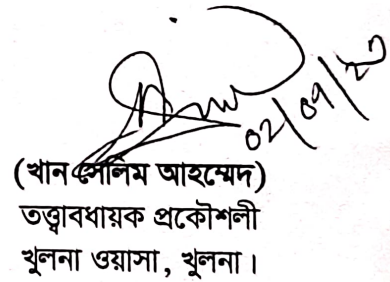 02/09/20
(খান সেলিম আহম্মেদ)
তত্ত্বাবধায়ক প্রকৌশলী
খুলনা ওয়াসা, খুলনা।